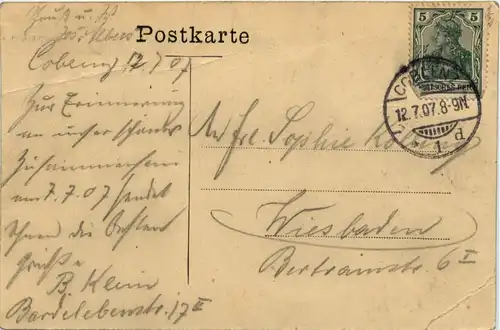 Gruß u.
Postkarte
Cobenz 12.7.07
Zur Erinnerung
an unser schönes
Zusammensein
am 7.7.07 sendet
Ihnen die besten
Grüße
B. Klein
Bardelebenstr. 17 II
5 5
DEUTSCHES REICH
12.7.07.8-9N
1 d
An Frl. Sophie
Wiesbaden
Bertramstr. 6 I